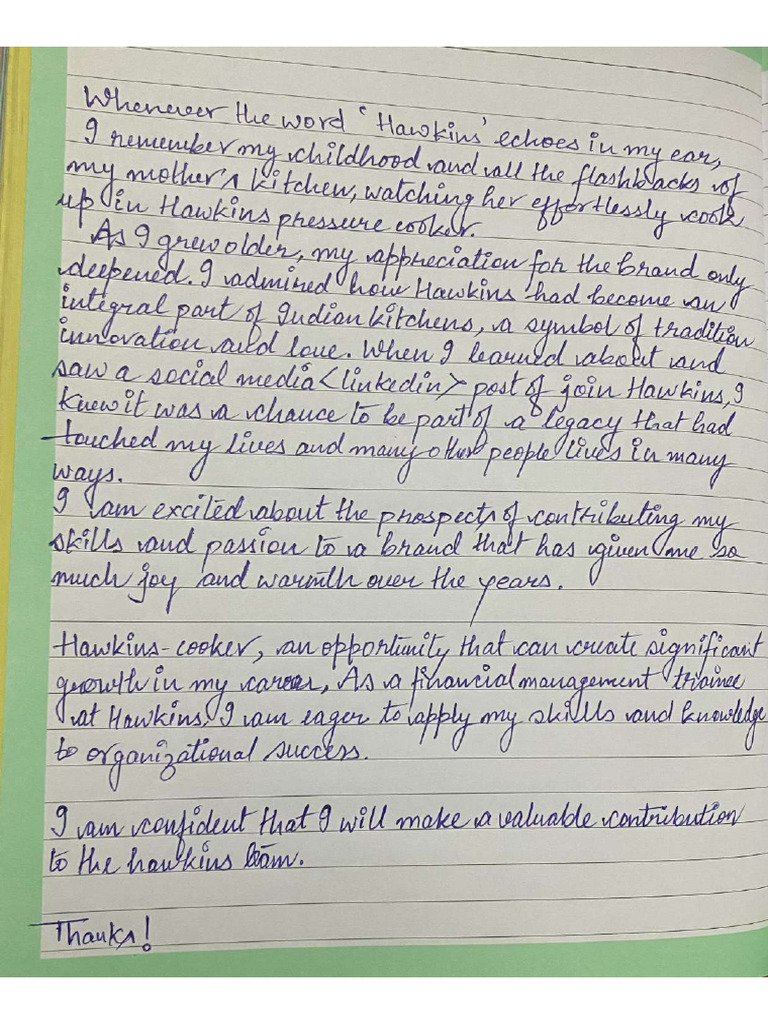 Whenever the word 'Hawkins' echoes in my ear,
I remember my childhood and all the flashbacks of
my mother's kitchen, watching her effortlessly cook
up in Hawkins pressure cooker.
As I grew older, my appreciation for the brand only
deepened. I admired how Hawkins had become an
integral part of Indian kitchens, a symbol of tradition
innovation and love. When I learned about and
saw a social media <linkedin> post of join Hawkins, I
knew it was a chance to be part of a legacy that had
touched my lives and many other people lives in many
ways.
I am excited about the prospects of contributing my
skills and passion to a brand that has given me so
much joy and warmth over the years.
Hawkins-cooker, an opportunity that can create significant
growth in my career, As a financial management trainee
at Hawkins, I am eager to apply my skills and knowledge
to organizational success.
I am confident that I will make a valuable contribution
to the hawkins team.
Thanks!